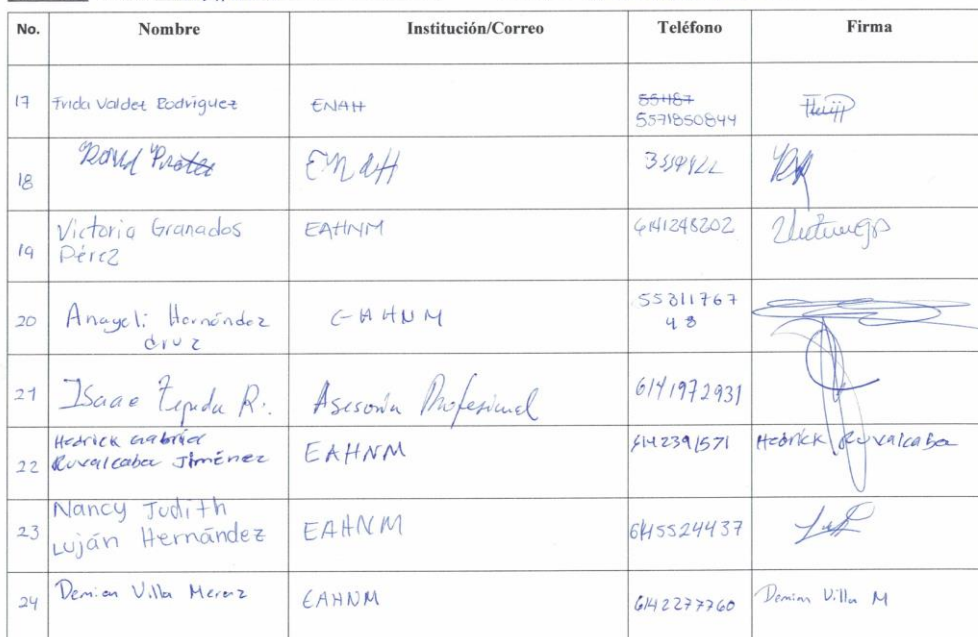 No. Nombre Institución/Correo Teléfono Firma
17 Frida Valdez Rodríguez ENAH 551187
5571850844
18 David ENAH
19 Victoria Granados EAHNM 6141248202
Pérez
20 Anayeli Hernández EAHNM 55311767
cruz 48
21 Isaac Zepeda R. Asesoría Profesional 6141972931
Hedrick Gabriel
22 Ruvalcaba Jiménez EAHNM 6142391571 Hedrick Ruvalcaba
Nancy Judith
23 Luján Hernández EAHNM 6145524437
24 Demian Villa Meraz EAHNM 6142277760 Demian Villa M